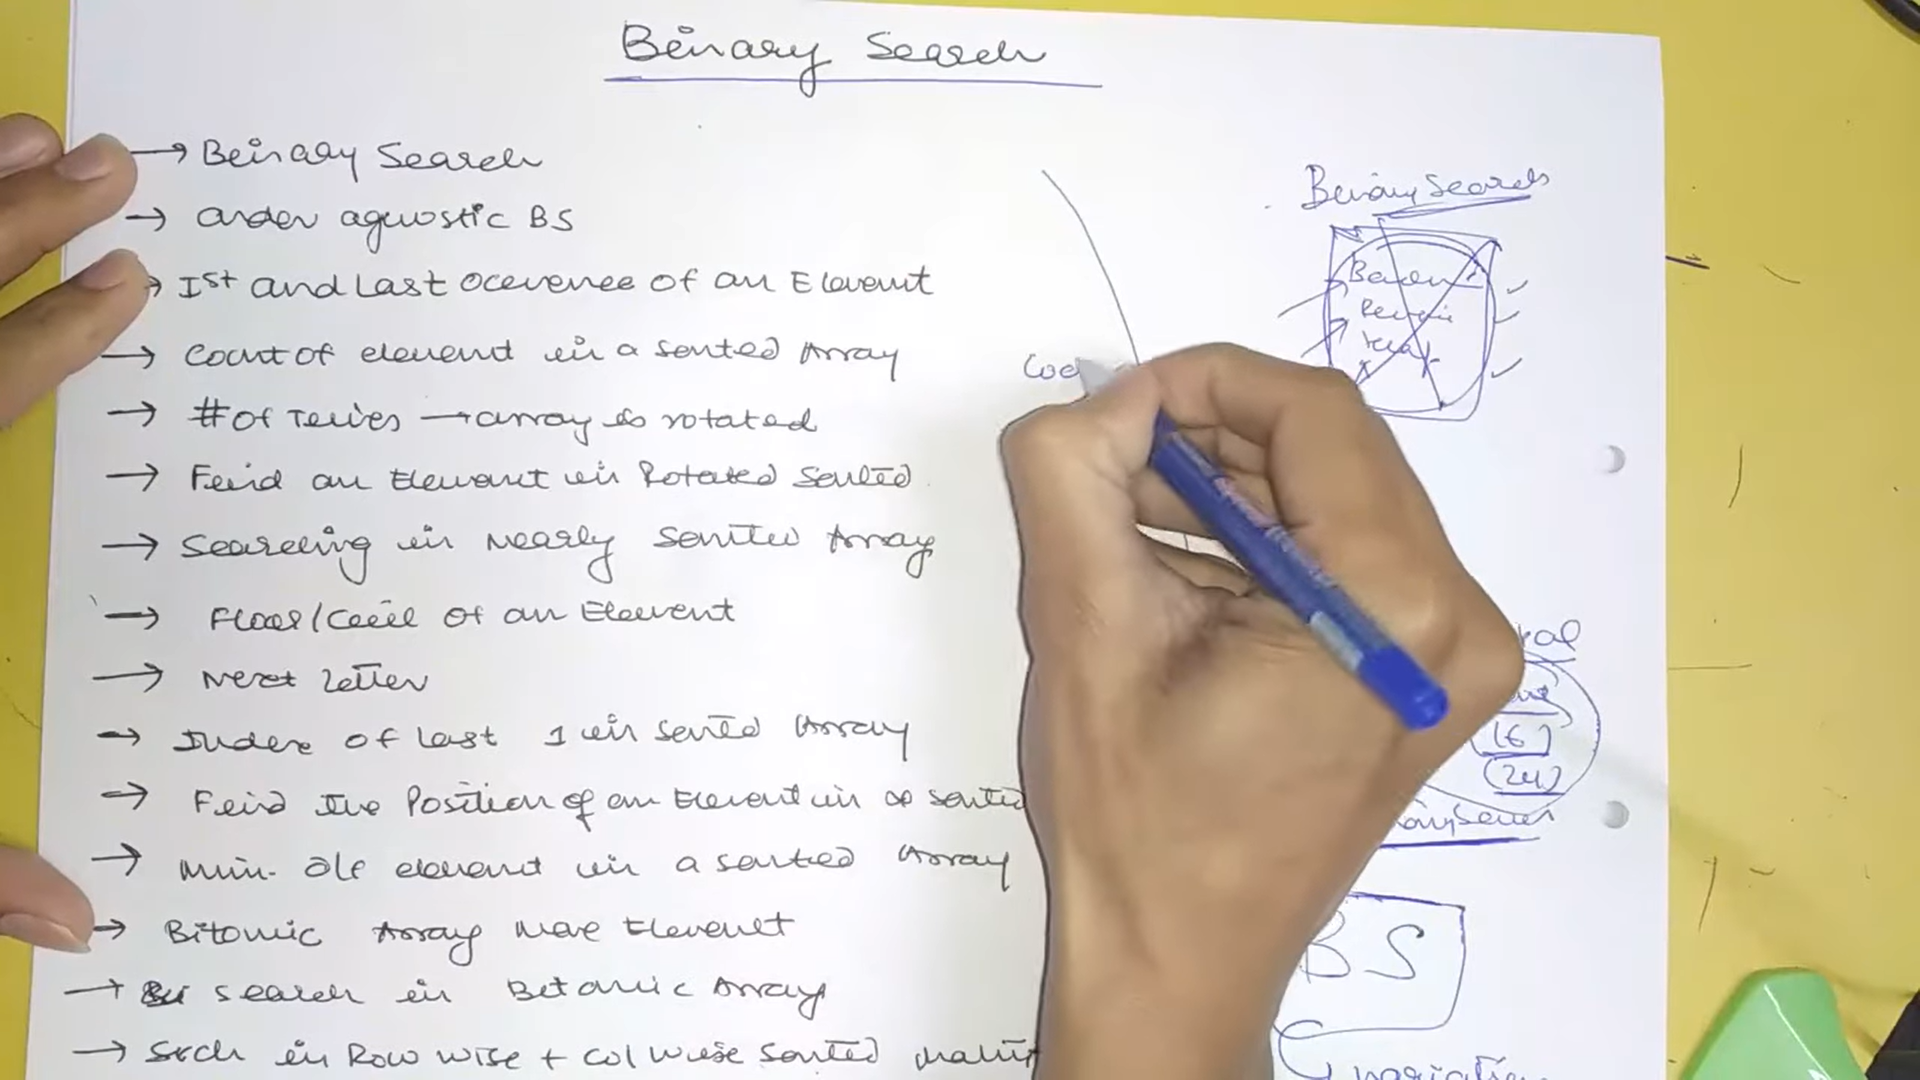 Binary Search
→ Binary Search
→ order agnostic BS
→ Ist and Last Ocevence of an Element
→ Count of element in a sorted Array
→ #of Times → array is rotated
→ Find an Element in Rotated Sorted
→ Searching in Nearly Sorted Array
→ Floor/Ceil of an Element
→ Next Letter
→ Index of last 1 in sorted Array
→ Find the Position of an Element in ∞ sorted
→ Min. dif element in a sorted Array
→ Bitonic Array max Element
→ search in Bitonic Array
→ Srch in Row wise + Col wise Sorted
Binary Search
16
24
BS